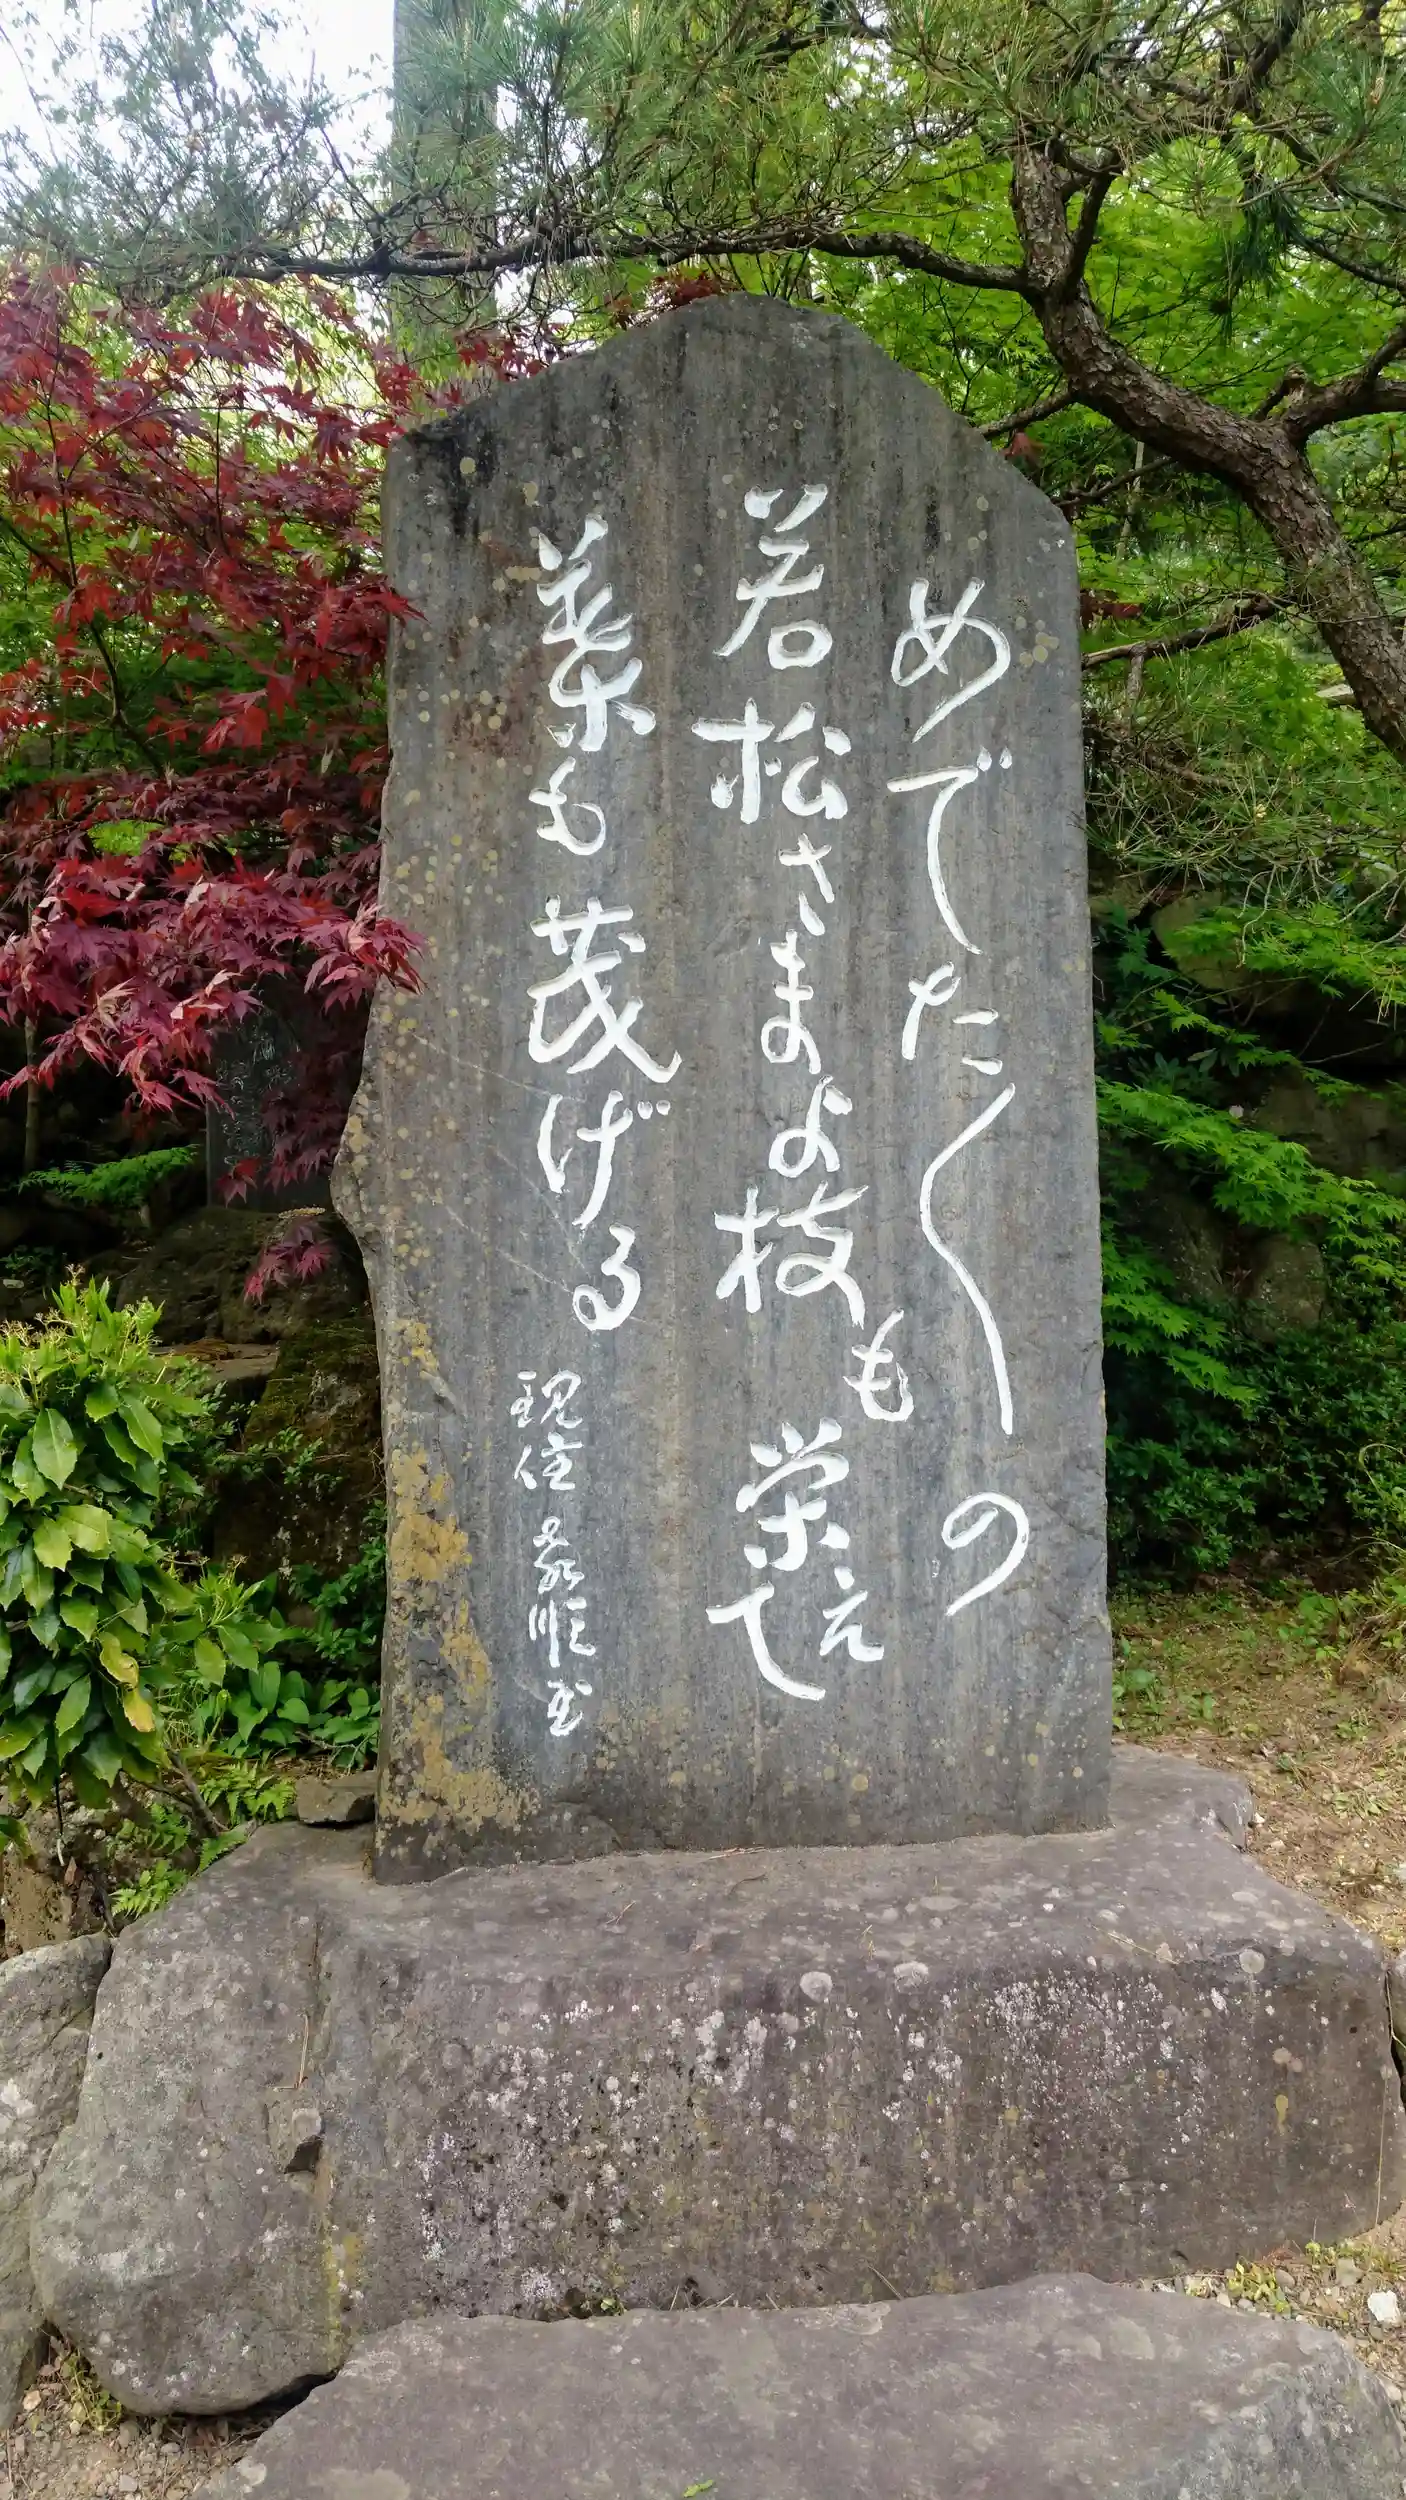 めでた〱の
若松さまよ枝も栄えて
葉も茂げる
現住 義順書